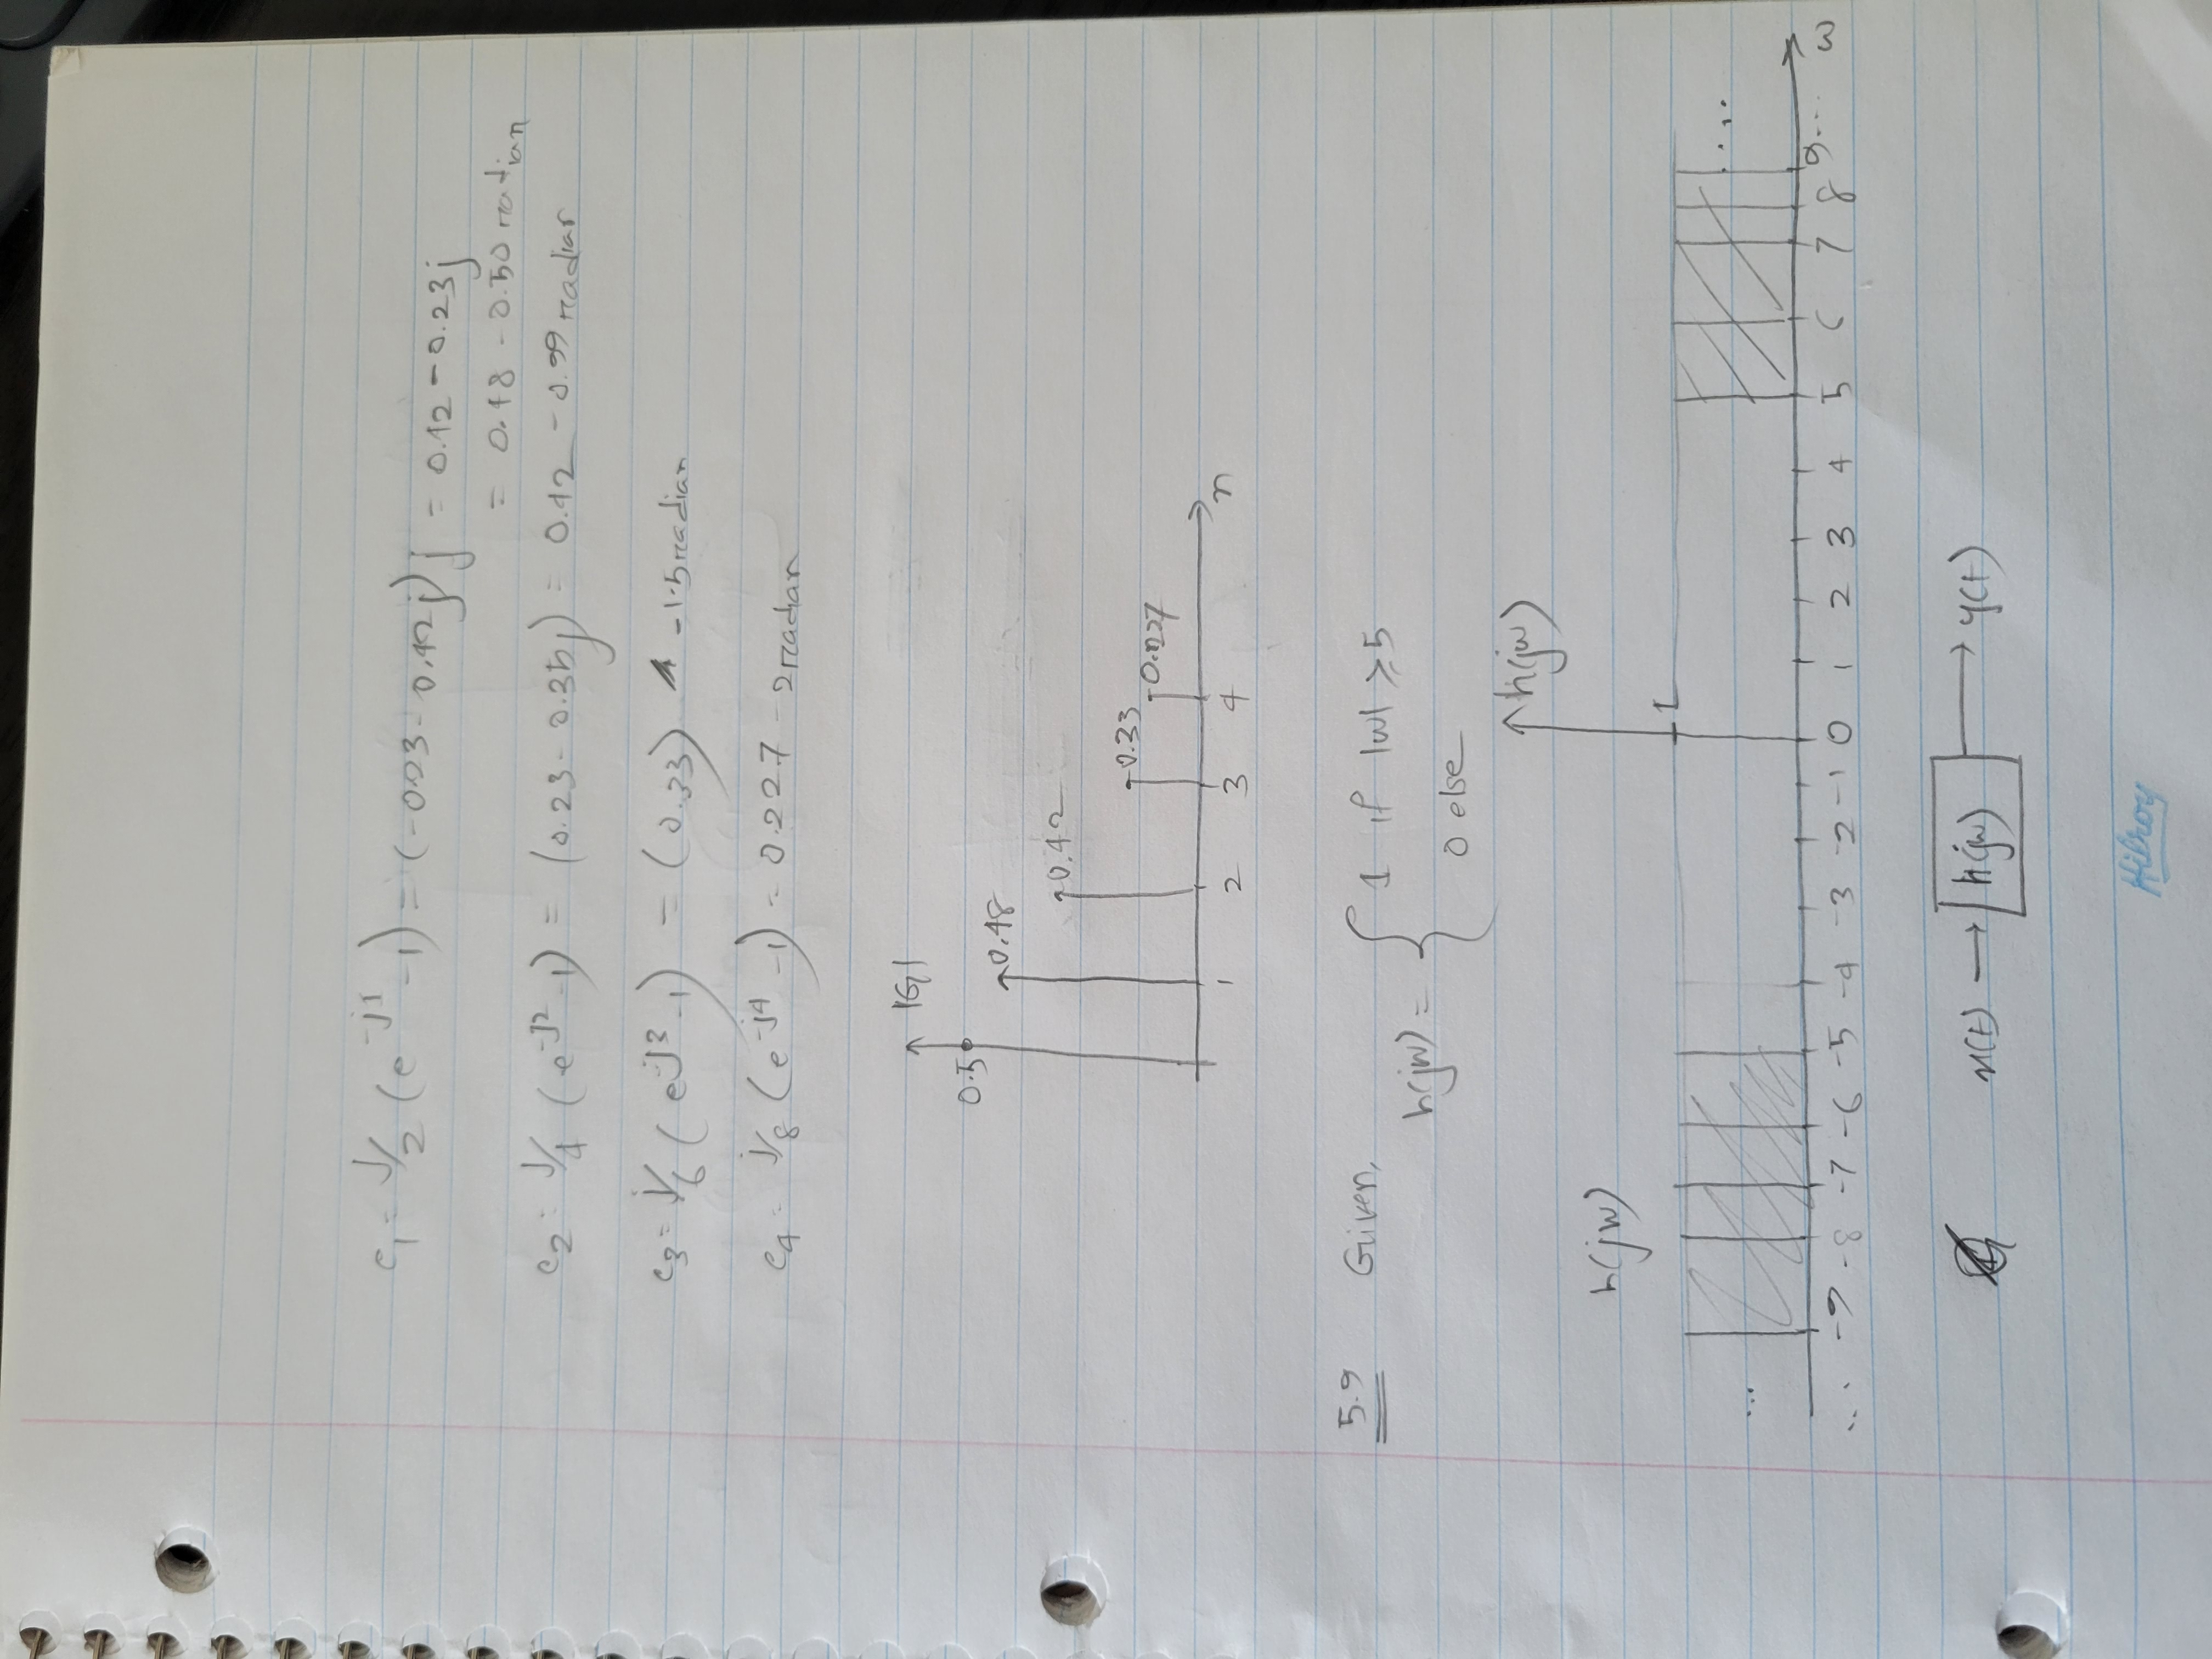 c₁ = j/2 (e^-j1 - 1) = (-0.23 - 0.42j) j = 0.42 - 0.23j
= 0.48 - 0.50 radian
c₂ = j/4 (e^-j2 - 1) = (0.23 - 0.35j) = 0.42 - 0.99 radian
c₃ = j/6 (e^-j3 - 1) = (0.33) - 1.5 radian
c₄ = j/8 (e^-j4 - 1) = 0.227 - 2 radian
|G|
0.5
0.48
0.42
0.33
0.227
1 2 3 4 n
5.9 Given,
h(jw) = { 1 if |w| ≥ 5
0 else
h(jw)
h(jw)
1
... ...
... -9 -8 -7 -6 -5 -4 -3 -2 -1 0 1 2 3 4 5 6 7 8 9... ω
x(t) → h(jw) → y(t)
Hilroy